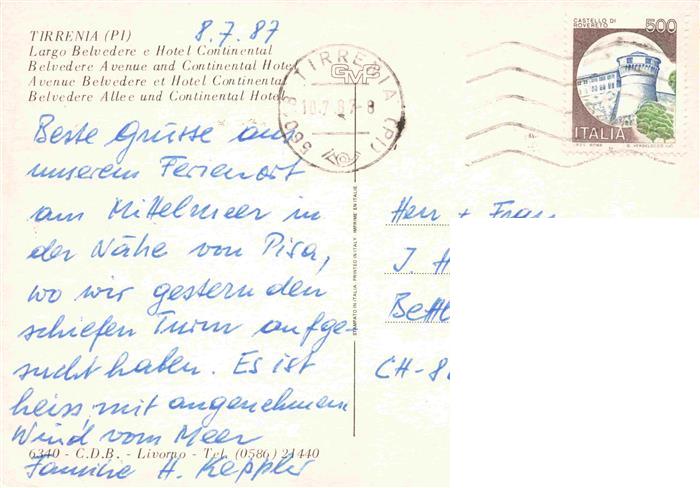 8.7.87
TIRRENIA (PI)
Largo Belvedere e Hotel Continental
Belvedere Avenue and Continental Hotel
Avenue Belvedere et Hotel Continental
Belvedere Allee und Continental Hotel
Beste Grüsse aus
unserem Ferienort
am Mittelmeer in
der Nähe von Pisa,
wo wir gestern den
schiefen Turm aufge-
sucht haben. Es ist
heiss, mit angenehmem
Wind vom Meer
Familie H. Keppler
6340 - C.D.B. - Livorno - Tel. (0586) 21440
STAMPATO IN ITALIA - PRINTED IN ITALY - IMPRIME EN ITALIE
56018 TIRRENIA (PI)
10.7.87-8
CASTELLO DI
ROVERETO
500
ITALIA
Herr + Frau
J. H
Bettl
CH-8